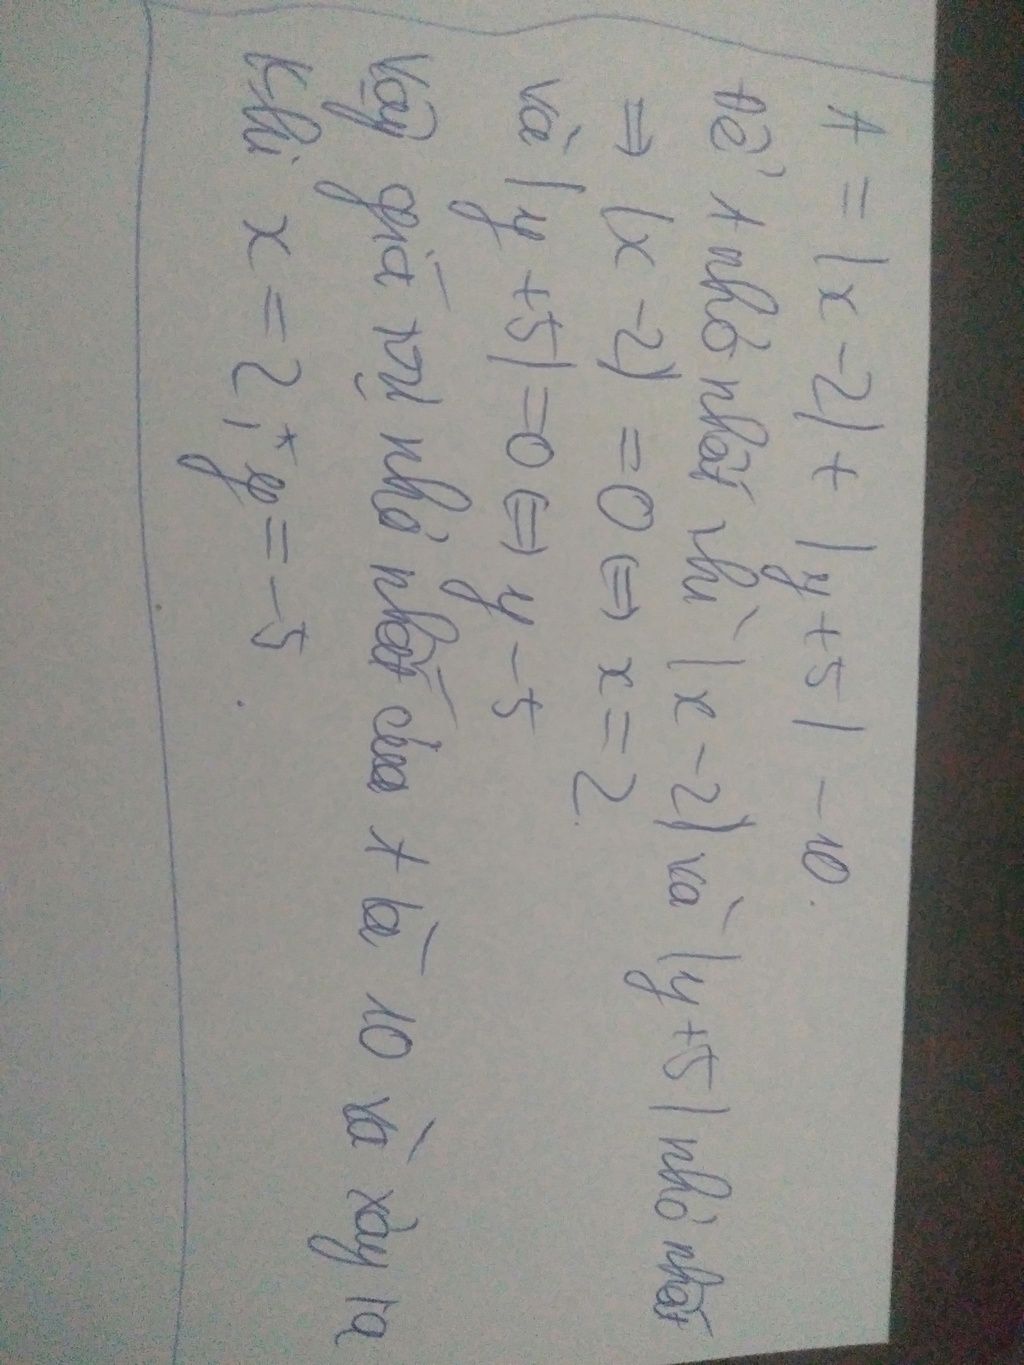 A = |x - 2| + |y + 5| - 10.
Để A nhỏ nhất thì |x - 2| và |y + 5| nhỏ nhất
⇒ |x - 2| = 0 ⇔ x = 2.
và |y + 5| = 0 ⇔ y - 5
Vậy giá trị nhỏ nhất của A là 10 và xảy ra
khi x = 2, y = -5